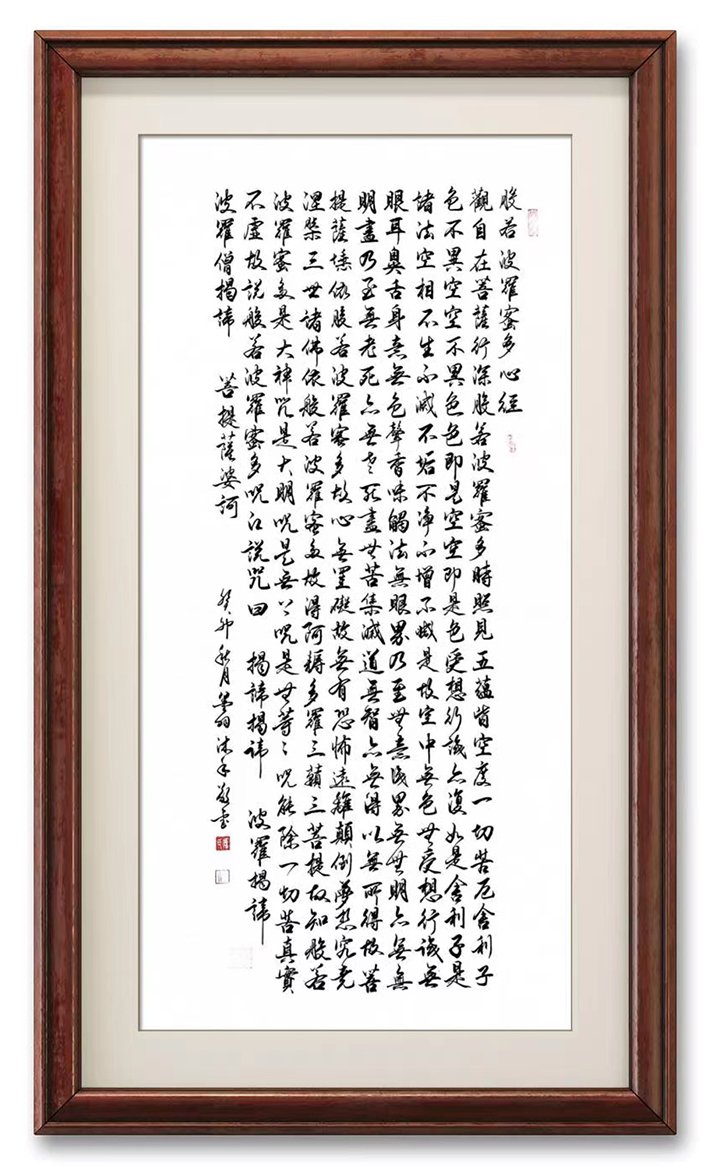 般若波羅蜜多心經
觀自在菩薩行深般若波羅蜜多時照見五蘊皆空度一切苦厄舍利子
色不異空空不異色色即是空空即是色受想行識亦復如是舍利子是
諸法空相不生不滅不垢不淨不增不減是故空中無色無受想行識無
眼耳鼻舌身意無色聲香味觸法無眼界乃至無意識界無無明亦無無
明盡乃至無老死亦無老死盡無苦集滅道無智亦無得以無所得故菩
提薩埵依般若波羅蜜多故心無罣礙故無有恐怖遠離顛倒夢想究竟
涅槃三世諸佛依般若波羅蜜多故得阿耨多羅三藐三菩提故知般若
波羅蜜多是大神咒是大明咒是無上咒是無等々咒能除一切苦真實
不虛故說般若波羅蜜多咒即說咒曰 揭諦揭諦 波羅揭諦
波羅僧揭諦 菩提薩婆訶 癸卯秋月 沐手敬書